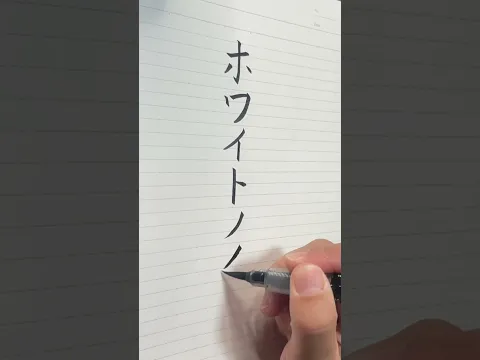 ホワイトノノ